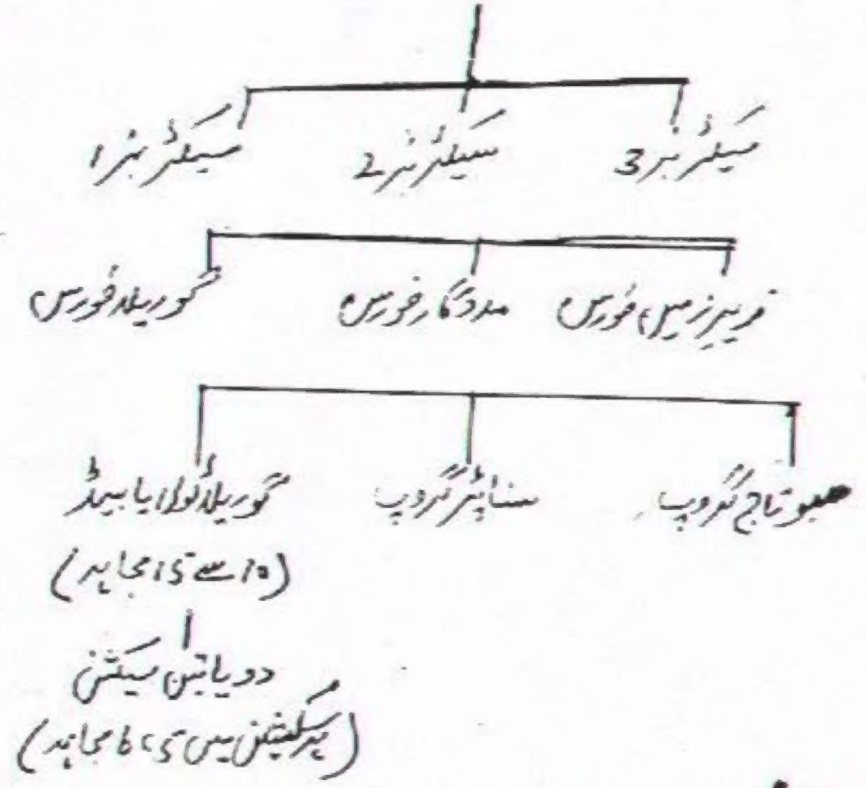 سیکٹر نمبر 3 سیکٹر نمبر 2 سیکٹر نمبر 1
زیر زمین فورس مددگار فورس گوریلا فورس
سبوتاج گروپ سنائپر گروپ گوریلا ٹولی یا بینڈ
(10 سے 15 مجاہد)
دو یا تین سیکشن
(ہر سیکشن میں 5، 6 مجاہد)